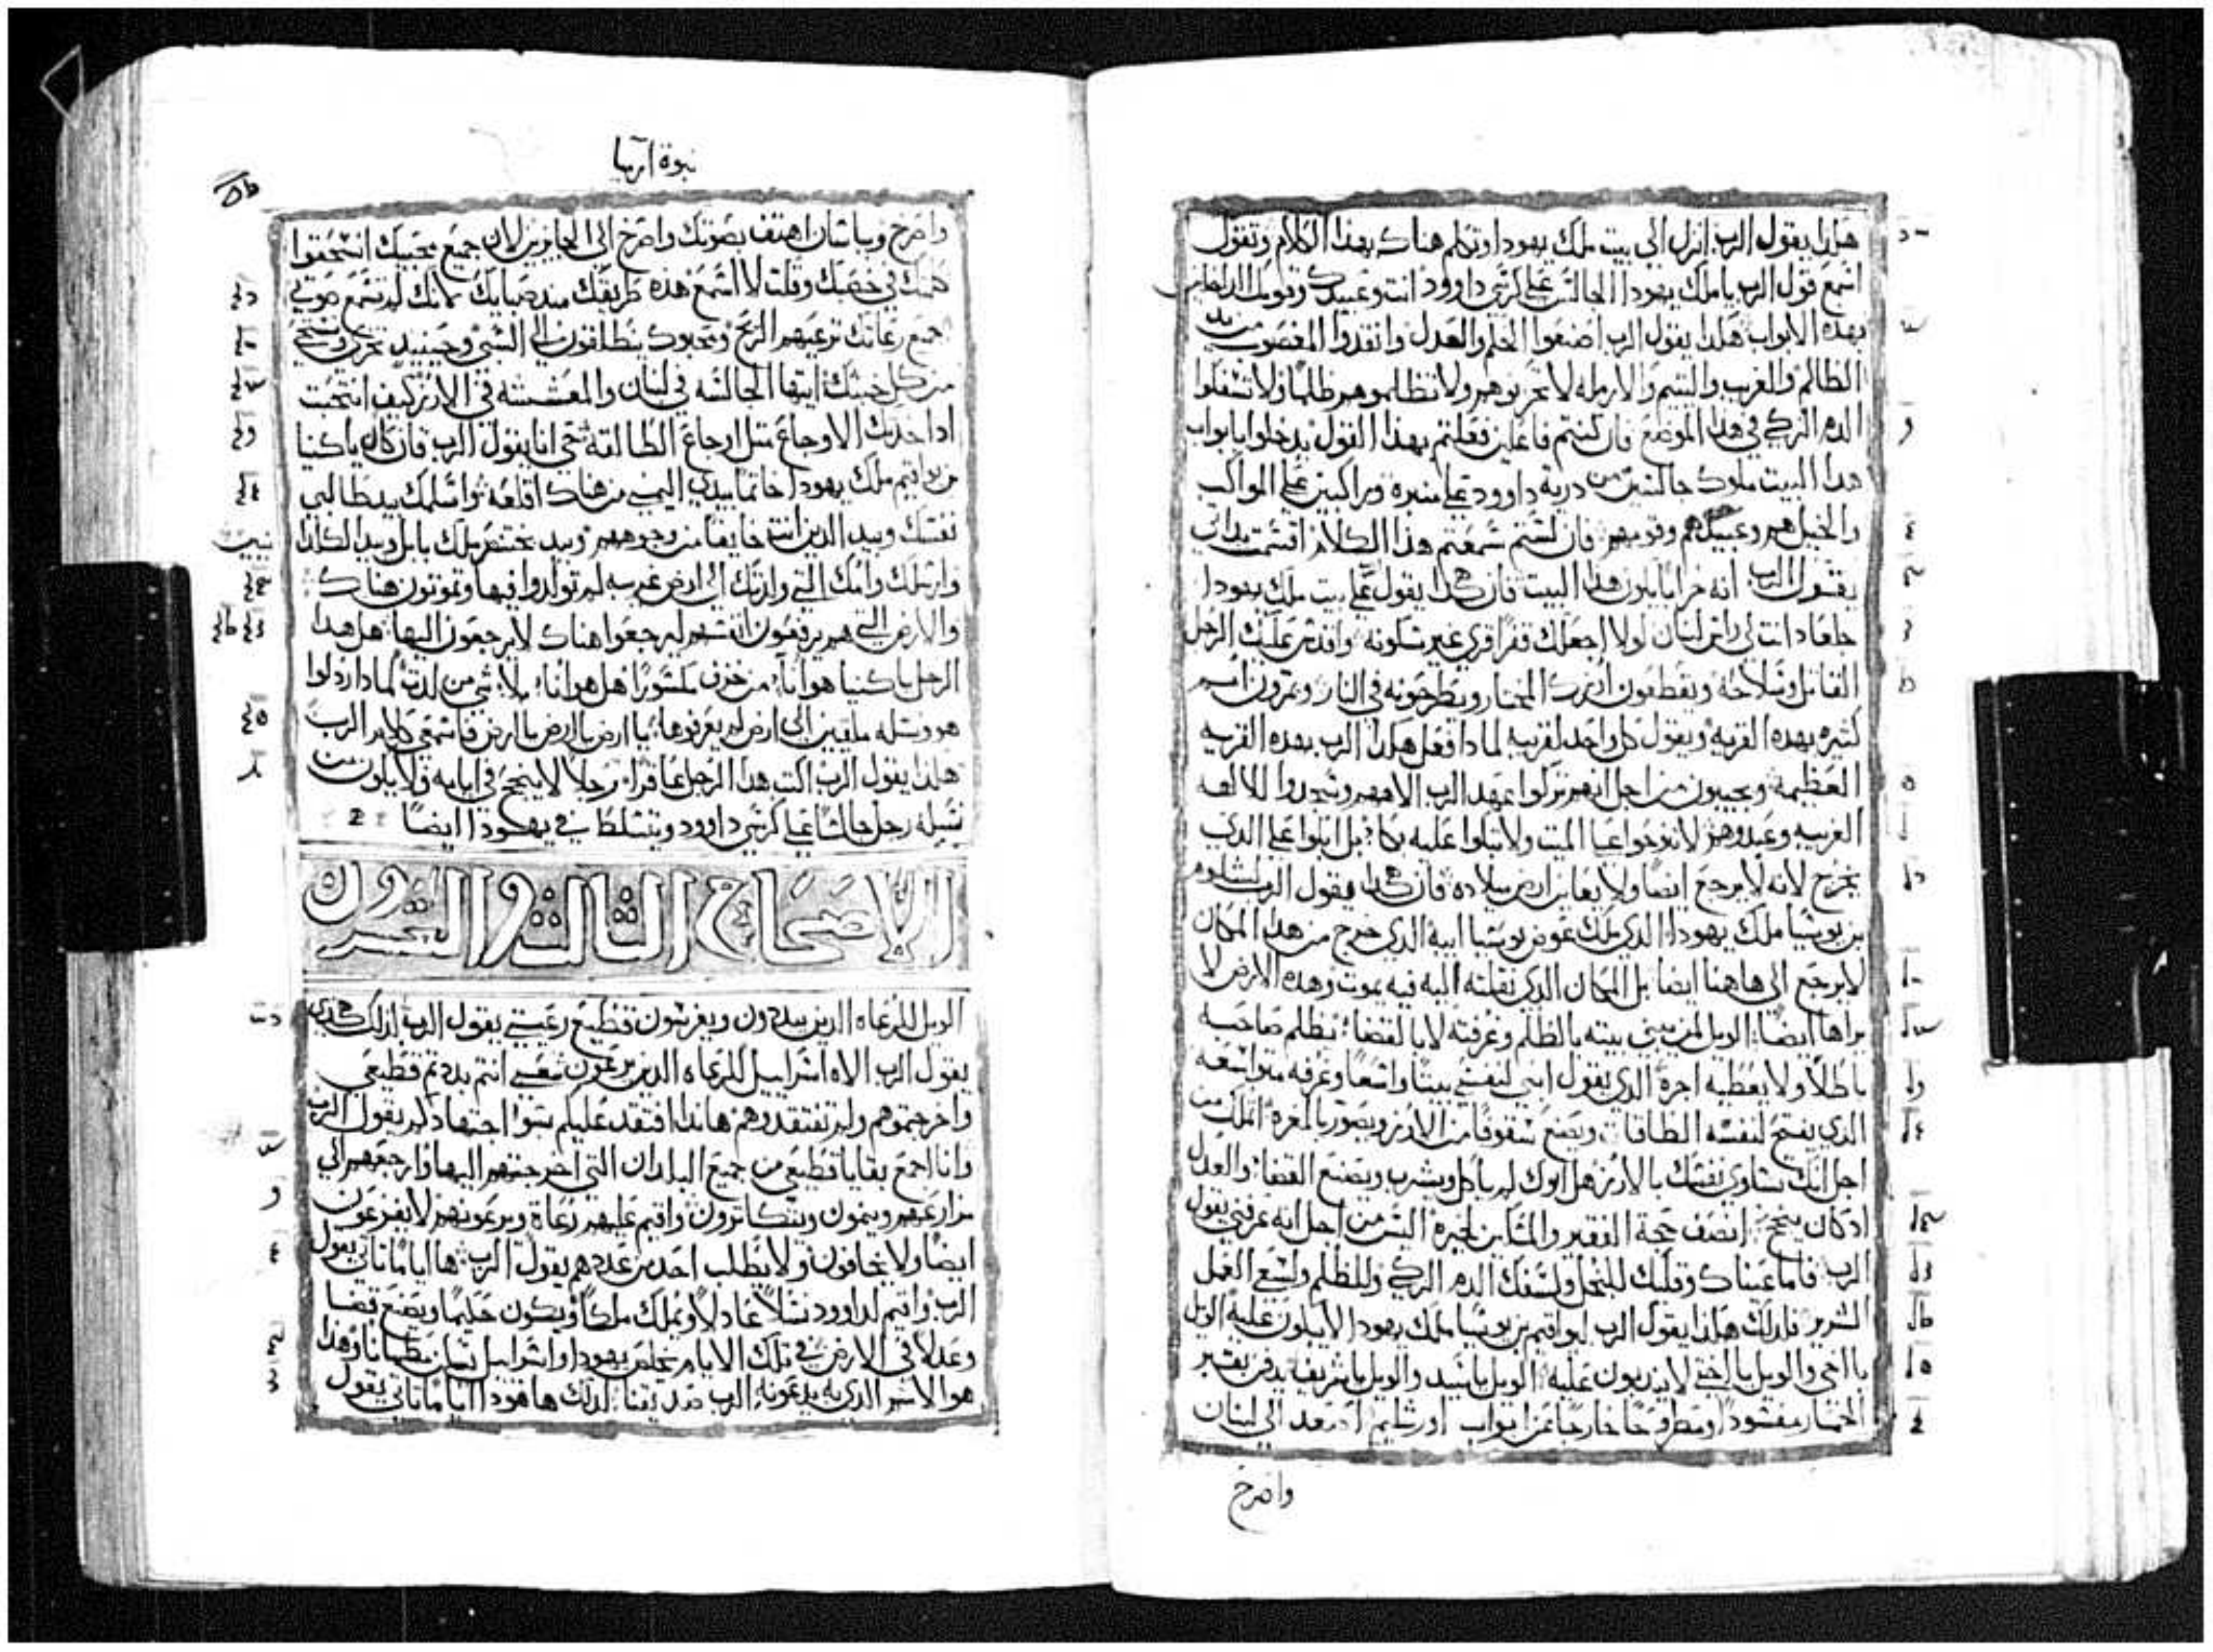 هكذا يقول الرب انزل الى بيت ملك يهودا وتكلم هناك بهذا الكلام وتقول
اسمع قول الرب يا ملك يهودا الجالس على كرسي داوود انت وعبيدك وقومك الداخلين
بهذه الابواب هكذا يقول الرب اصنعوا الحكم والعدل وانقدوا المغصوب من يد
الظالم والغريب واليتيم والارمله لا تحزنوهم ولا تظلموهم ظلمًا ولا تسفكوا
الدم الزكي في هدا الموضع فان كنتم فاعلين فعلتم بهذا القول يدخلوا بابواب
هدا البيت ملوك جالسين من درية داوود على منبره وراكبين على المواكب
والخيل هم وعبيدهم وقومهم فان لستم سمعتم هذا الكلام اقسمت بداتي
يقول الرب انه خرابا يكون هدا البيت فان هكذا يقول على بيت ملك يهودا
جلعاد انت لي راس لبنان لولا اجعلك قفرا قرى غير مسكونه واقدس عليك الرجل
القاتل وسلاحه ويقطعون ارزك المختار ويطرحونه في النار وتمرون امم
كثيره بهده القريه ويقول كل واحد لقريبه لمادا فعل هكذا الرب بهده القريه
العظيمه ويجيبون من اجل انهم تركوا عهد الرب الاههم وسجدوا للالهه
الغريبه وعبدوهم لا تنوحوا على الميت ولا تبكوا عليه بكاء بل ابكوا على الدي
يخرج لانه لا يرجع ايضا ولا يعاين ارض ميلاده فان هكدا يقول الرب لسلوم
بن يوشيا ملك يهودا الدي ملك عوض يوشيا ابيه الدي خرج من هدا المكان
لا يرجع الى هاهنا ايضا بل المكان الدي نقلته اليه فيه يموت وهده الارض لا
يراها ايضًا الويل لمن يبني بيته بالظلم وغرفته لا بالقضاء يظلم صاحبه
باطلاً ولا يعطيه اجرة الدي يقول ابني لنفسي بيتًا واسعًا وغرفه متواسعه
الدي يفتح لنفسه الطاقات ويصنع سقوفًا من الارز ويصور بالمغره اتملك من
اجل انك تساوي نفسك بالارز هل ابوك لم ياكل ويشرب ويصنع القضاء والعدل
ادكان ينجح انصف حجة الفقير والمسكين لخيره اليس من اجل انه عرفني يقول
الرب فاما عيناك وقلبك للبخل ولسفك الدم الزكي وللظلم ولسعى العمل
الشرير فلدلك هكذا يقول الرب ليواقيم بن يوشيا ملك يهودا لا يبكون عليه الويل
يا اخي والويل يا اختي لا يندبون عليه الويل يا سيد والويل يا شريف يدفن بقبر
الحمار مفسودا ومطروحًا خارجًا عن ابواب اورشليم اصعد الى لبنان
واصرخ
نبوة ارميا
واصرخ وبباشان اهتف بصوتك واصرخ الى الجايزين لان جميع محبيك انسحقوا
كلمتك في خصبك وقلت لا اسمع هذه طريقك مند صبايك لانك لم تسمع صوتي
جميع رعاتك ترعيهم الريح ومحبوك ينطلقون الى السبي وحينيد تخزي وتستحي
من كل خبثك ايتها الجالسه في لبنان والمعششه في الارز كيف انتحبت
ادا اخدتك الاوجاع مثل اوجاع الطالقه حي انا يقول الرب فان كان ياكنيا
بن يواقيم ملك يهودا خاتما بيدي اليمنى من هناك اقلعه واسلمك بيد طالبي
نفسك وبيد الدين انت خايفا من وجوههم وبيد بختنصر ملك بابل وبيد الكلدا
نيين
وارسلك وامك التي ولدتك الى ارض غريبه لم تولدوا فيها وتموتون هناك
والارض التي هم يرفعون انفسهم ليرجعوا هناك لا يرجعون اليها هل هدا
الرجل ياكنيا هو اناء من خزف مكسورًا هل هو اناء بلا شي من لدة لمادا ردلوا
هو ونسله ملقيين الى ارض لم يعرفوها يا ارض يا ارض يا ارض فاسمعي كلام الرب
هكذا يقول الرب اكتب هدا الرجل عاقرا رجلا لا ينجح في ايامه ولا يكون من
نسله رجل جالسًا على كرسي داوود ويتسلط في يهودا ايضًا
الاصحاح الثالث والعشرون
الويل للرعاه الدين يبددون ويفرسون قطيع رعيتي يقول الرب لدلك هكدي
يقول الرب الاه اسراييل للرعاه الدين يرعون شعبي انتم بددتم قطيعي
واخرجتموهم ولم تفتقدوهم هاندا افتقد عليكم بسوء اجتهادكم يقول الرب
وانا اجمع بقايا قطيعي من جميع البلدان التي اخرجتهم اليها وارجعهم الى
مزارعهم وينمون ويتكاثرون واقيم عليهم رعاة ويرعونهم لا يفزعون
ايضًا ولا يخافون ولا يطلب احد من عددهم يقول الرب ها اياما تاتي يقول
الرب واقيم لداوود نسلاً عادلاً ويملك ملكًا ويكون حكيمًا ويصنع قضا
وعدلا في الارض في تلك الايام يخلص يهودا واسراييل يسكن مطمانا وهذا
هو الاسم الدي به يدعونه الرب صديقنا لدلك ها هودا اياما تاتي يقول